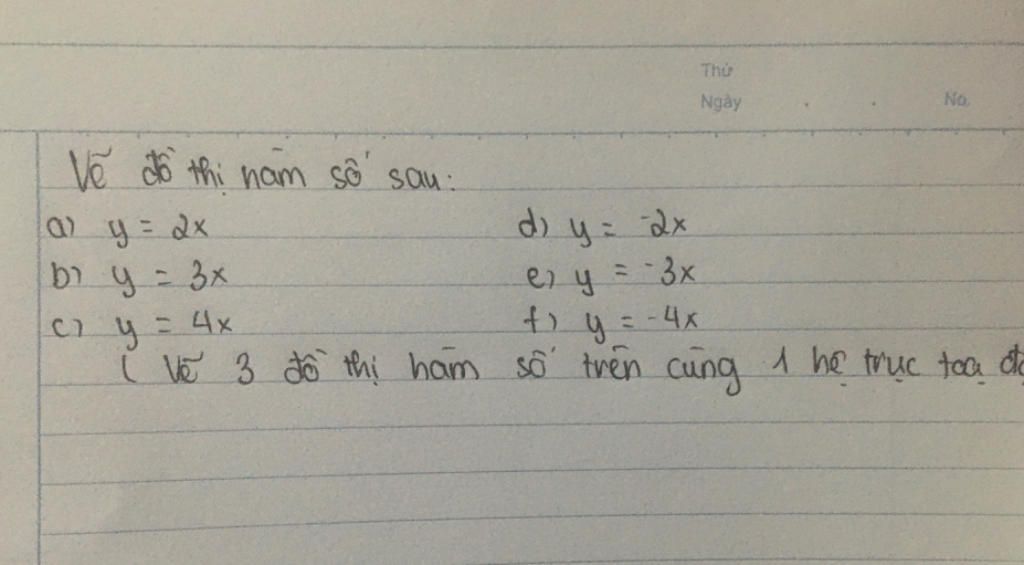 Thứ
Ngày . . No.
Vẽ đồ thị hàm số sau:
a) y = 2x d) y = -2x
b) y = 3x e) y = -3x
c) y = 4x f) y = -4x
( Vẽ 3 đồ thị hàm số trên cùng 1 hệ trục toạ